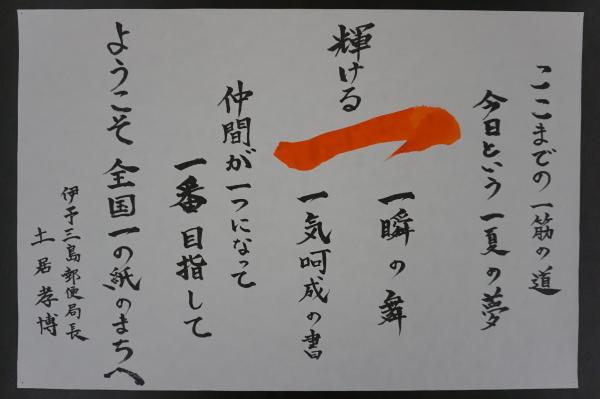 ここまでの一筋の道
今日という一夏の夢
一
一瞬の舞
輝ける
一気呵成の書
仲間が一つになって
一番目指して
ようこそ全国一の紙のまちへ
伊予三島郵便局長
土居孝博